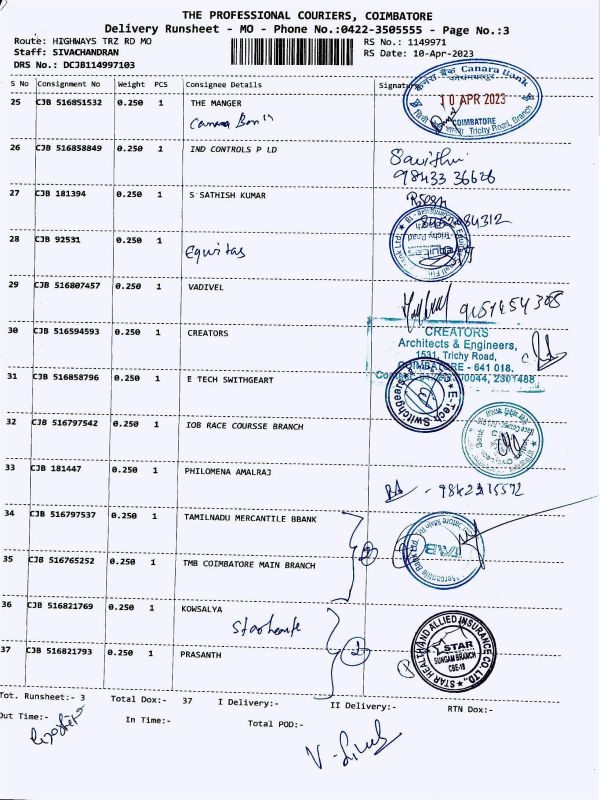 THE PROFESSIONAL COURIERS, COIMBATORE
Delivery Runsheet - MO - Phone No.:0422-3505555 - Page No.:3
Route: HIGHWAYS TRZ RD MO
RS No.: 1149971
Staff: SIVACHANDRAN
RS Date: 10-Apr-2023
DRS No.: DCJB114997103
S No Consignment No Weight PCS Consignee Details Signature
25 CJB 516851532 0.250 1 THE MANGER
Canara Bank
Canara Bank
10 APR 2023
COIMBATORE
Trichy Road, Branch
26 CJB 516858849 0.250 1 IND CONTROLS P LD
Savithri
98433 36626
27 CJB 181394 0.250 1 S SATHISH KUMAR
28 CJB 92531 0.250 1
Equitas
Trichy Road
29 CJB 516807457 0.250 1 VADIVEL
30 CJB 516594593 0.250 1 CREATORS
CREATORS
Architects & Engineers,
1531, Trichy Road,
COIMBATORE - 641 018.
31 CJB 516858796 0.250 1 E TECH SWITHGEART
E-Tech Switchgears
32 CJB 516797542 0.250 1 IOB RACE COURSSE BRANCH
33 CJB 181447 0.250 1 PHILOMENA AMALRAJ
34 CJB 516797537 0.250 1 TAMILNADU MERCANTILE BBANK
2
TMB
Mercantile Bank Ltd
35 CJB 516765252 0.250 1 TMB COIMBATORE MAIN BRANCH
36 CJB 516821769 0.250 1 KOWSALYA
STAR HEALTH AND ALLIED INSURANCE CO. LTD.,
STAR
SUNGAM BRANCH
CBE-18
37 CJB 516821793 0.250 1 PRASANTH
2
Tot. Runsheet:- 3 Total Dox:- 37 I Delivery:- II Delivery:- RTN Dox:-
Out Time:- In Time:- Total POD:-